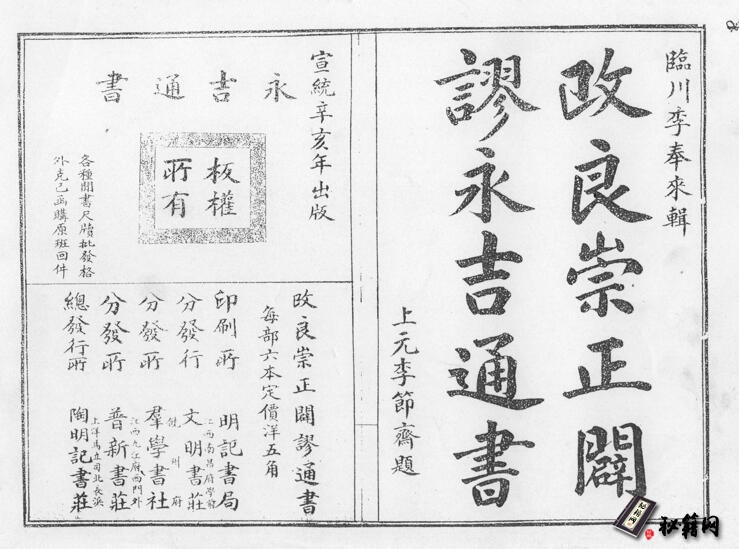 臨川李奉來輯
改良崇正闢
謬永吉通書
上元李節齋題
宣統辛亥年出版
永吉通書
板權
所有
各種閒書尺牘批發格
外克己函購原班回件
改良崇正闢謬通書
每部六本定價洋五角
印刷所 明記書局
分發行 江西南昌府學前 文明書莊
分發所 饒州府 羣學書社
分發所 江西九江府西門外 普新書莊
總發行所 上洋馬立司北長浜 陶明記書莊
秘籍网